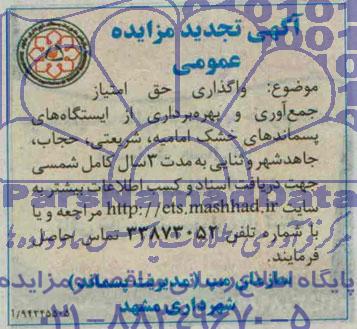 آگهی تجدید مزایده
عمومی
موضوع: واگذاری حق امتیاز
جمع‌آوری و بهره‌برداری از ایستگاه‌های
پسماندهای خشک امامیه، شریعتی، حجاب،
جاهدشهر و ثنایی به مدت ۳ سال کامل شمسی
جهت دریافت اسناد و کسب اطلاعات بیشتر به
سایت http://ets.mashhad.ir مراجعه و یا
با شماره تلفن ۳۳۸۷۳۰۵۲ تماس حاصل
فرمایند.
سازمان مدیریت پسماند
شهرداری مشهد
ParsNamadData
پایگاه
مزایده